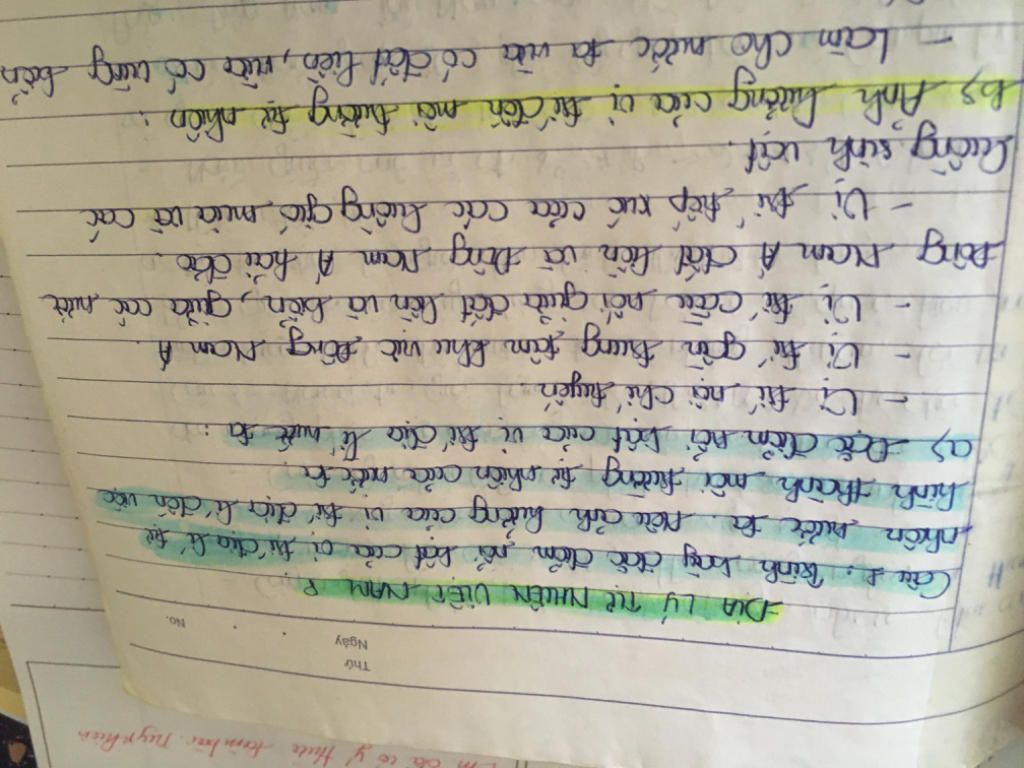 Thứ
Ngày
No.
ĐỊA LÝ TỰ NHIÊN VIỆT NAM 2
Câu 1: Trình bày đặc điểm nổi bật của vị trí địa lí tự
nhiên nước ta. Nêu ảnh hưởng của vị trí địa lí đến việc
hình thành môi trường tự nhiên của nước ta.
a) Đặc điểm nổi bật của vị trí địa lí nước ta :
- Vị trí nội chí tuyến
- Vị trí gần trung tâm khu vực Đông Nam Á.
- Vị trí cầu nối giữa đất liền và biển, giữa các nước
Đông Nam Á đất liền và Đông Nam Á hải đảo.
- Vị trí tiếp xúc của các luồng gió mùa và các
luồng sinh vật.
b) Ảnh hưởng của vị trí đến môi trường tự nhiên :
- Làm cho nước ta vừa có đất liền, vừa có vùng biển